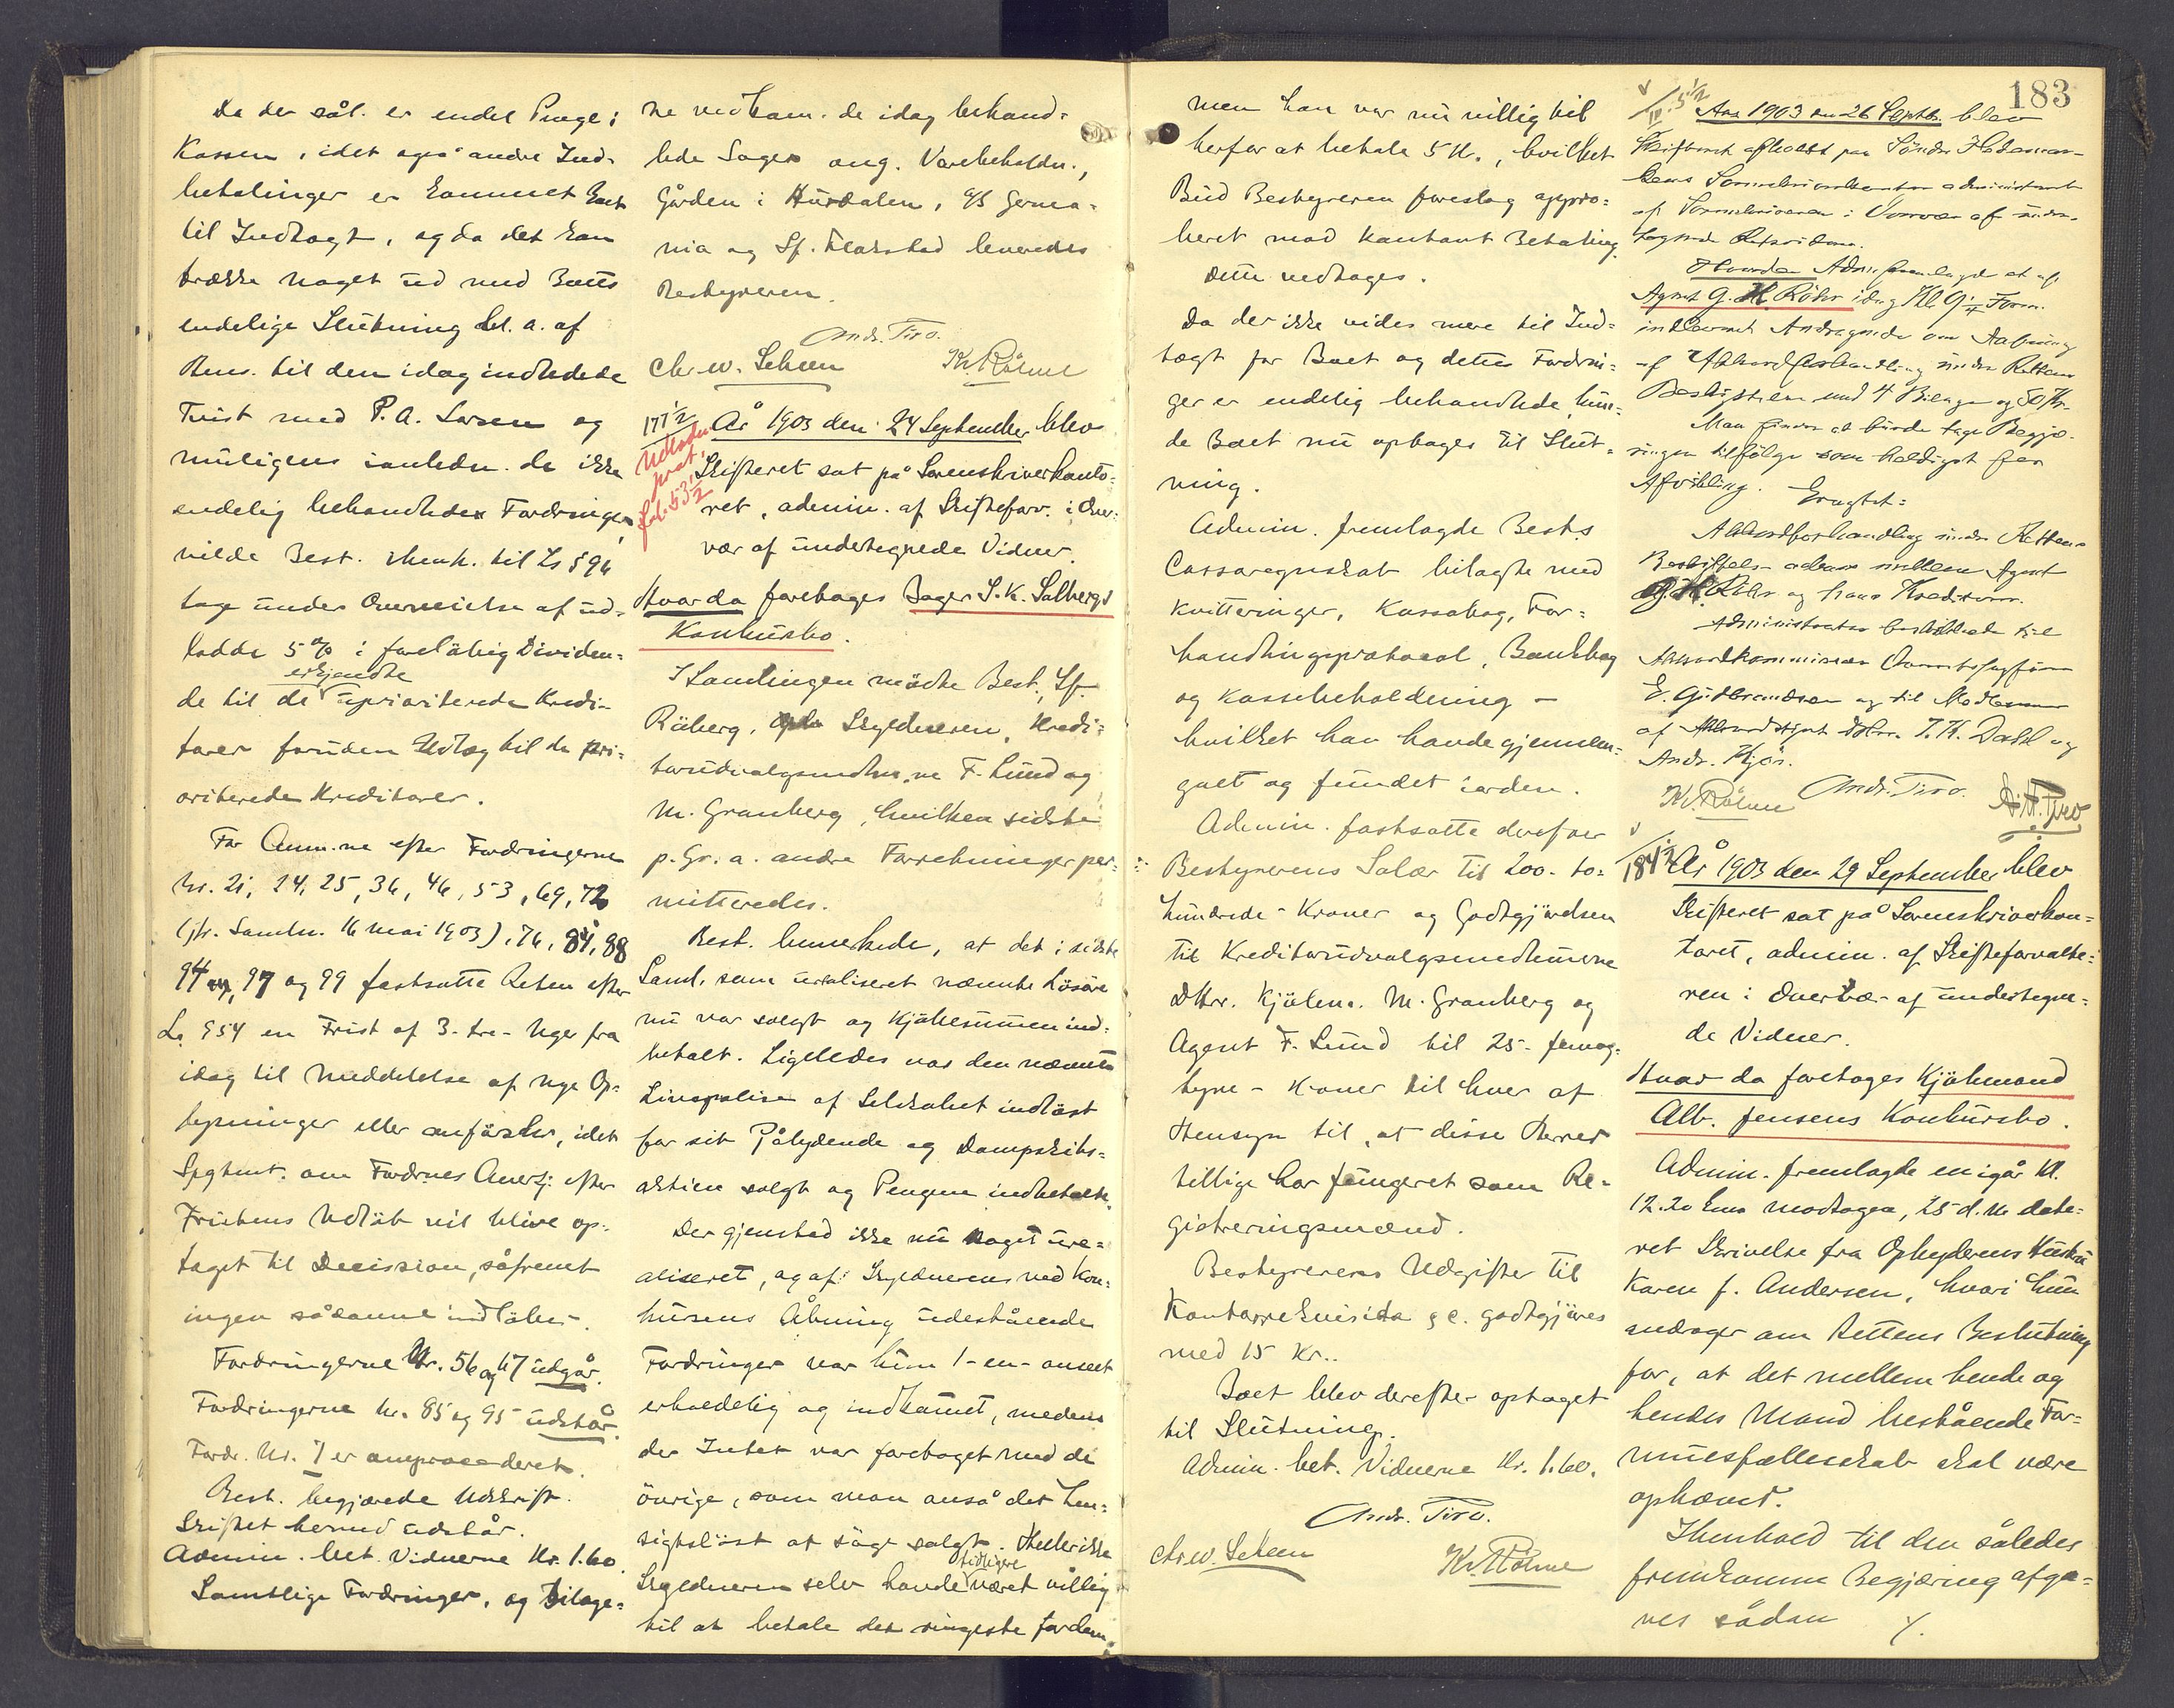 Da der sål. er endel Penge i
Kassen, idet også andre Ind-
betalinger er kommet Boet
til Indtægt, og da det kan
trække noget ud med Boets
endelige Slutning bl. a. af
Hens. til den idag indledede
Tvist med P. A. Larsen og
muligens ianledn. de ikke
endelig behandlede Fordringer,
vilde Best. i henh. til Ls § 94
tage under Overveielse af ud-
lodde 5 % i foreløbig Dividen=
de til de erkjendte uprioriterede Kredi-
torer foruden Udlæg til de pri=
oriterede Kreditorer.
For Anm.ne efter Fordringerne
Nr. 21, 24, 25, 36, 46, 53, 69, 72
(jfr. Samln. 16 mai 1903), 76, 84, 88
94, 97 og 99 fastsatte Retten efter
Ls § 54 en Frist af 3- tre- Uger fra
idag til Meddelelse af nye Op=
lysninger eller anførsler, idet
Spgsmt. om Fordr.nes Anerkj. efter
Fristens Udløb vil blive op-
taget til Decission, såfremt
ingen sådanne indløber.
Fordringerne Nr. 56 og 67 udgår.
Fordringerne Nr. 85 og 95 udstår.
Fordr. Nr. 7 er omprocederet.
Best. begjærede Udskrift.
Skiftet hermed udstår.
Admin. bet. Vidnerne Kr. 1.60.
Samtlige Fordringer, og bilage=
ne vedkom. de idag behand=
lede Sager ang. Varebeholdn.,
Gården i Hurdalen, A/S Germa=
nia og Sf. Flakstad leveredes
Bestyreren.
Andr. Tiro.
Chr. W. Scheen Kr. Röhne
171 1/2
Udladn.
prot.
fol. 53 1/2
År 1903 den 24 September blev
Skifteret sat på Sorenskriverkonto=
ret, admin. af Skifteforv. i Over=
vær af undertegnede Vidner.
Hvor da foretages Sagen S. K. Solbergs
Konkursbo.
I Samlingen mødte Best., Sf.
Råberg, Skyldneren, Kredi=
torudvalgsmedlm.ne F. Lund og
M. Granberg, hvilken sidste
p. Gr. a. andre Forretninger per=
mitteredes.
Best. bemerkede, at det i sidste
Saml. som urealiseret nævnte Løsøre
nu var solgt og Kjøbesummen ind=
betalt. Ligeledes var den nævnte
Livspolise af Selskabet indløst
for sit Pålydende og Dampskibs=
aktien solgt og Pengene indbetalte.
Der gjenstod ikke nu noget ure=
aliseret, og af Skyldnerens ved Kon=
kursens Åbning udestående
Fordringer var kun 1 - en - anseet
erholdelig og indkomet, medens
der Intet var foretaget med de
övrige, som man anså det hen=
sigtslöst at søge solgt. Heller ikke
Skyldneren selv havde tidligere været villig
til at betale det ringeste for dem,
men han var nu villig til
herfor at betale 5 Kr., hvilket
Bud Bestyreren foreslog appro=
beret mod kontant Betaling.
Dette vedtages.
Da der ikke vides mere til Ind=
tægt for Boet og dettes Fordrin=
ger er endelig behandlede, kun=
de Boet nu optages til Slut=
ning.
Admin. fremlagde Best.s
Cassaregnskab bilagte med
Kvitteringer, Kassabog, For=
handlingsprotocol, Bankbog
og Kassebeholdning -
hvilket han havde gjennem=
gaet og fundet iorden.
Admin. fastsatte derefter
Bestyrerens Salær til 200- to=
hundrede - Kroner og Godtgjørelsen
til Kreditorudvalgsmedlmerne
DHrr. Kjøbm. M. Granberg og
Agent F. Lund til 25- femog=
tyve - Kroner til hver af
Hensyn til, at disse Herrer
tillige har fungeret som Re-
gistreringsmænd.
Bestyrerens Udgifter til
Kontorrekvisita &c. godtgjøres
med 15 Kr..
Boet blev derefter optaget
til Slutning.
Admin. bet. Vidnerne Kr. 1.60.
Andr. Tiro.
Chr. W. Scheen Kr. Röhne
183
Aar 1903 den 26 Septbr. blev
Skifteret afholdt paa Söndre Hedemar-
kens Sorenskriverkontor administreret
af Sorenskriveren i Overvær af under-
tegnede Retsvidner.
Hvorda Adm. fremlagde et af
Agent G. H. Röhr idag Kl. 9 1/4 Form.
indleveret Andragende om Aabning
af Akkordforhandling under Rettens
Bestyrelse med 4 Bilage og 50 Kr.
Man finder at burde tage Begjæ-
ringen tilfölge som heldigst for
Afvikling. Eragtet:
Akkordforhandling under Rettens
Bestyrelse aabnes mellem Agent
G. H. Röhr og hans Kreditorer.
Administrator beskikkede til
Akkordkommissær Overretssagförer
E. Gudbrandsen og til Medlemmer
af Akkordstyret DHrr. T. K. Dahl og
Andr. Kjös.
Kr. Röhne Andr. Tiro.
184 1/2 År 1903 den 29 September blev
Skifteret sat på Sorenskriverkon=
toret, admin. af Skifteforvalte=
ren i Overvær af undertegne=
de Vidner.
Hvor da foretages Kjøbmand
Alb. Jensens Konkursbo.
Admin. fremlagde en igår Kl.
12.20 Em modtagen, 25 d. M. date=
ret Skrivelse fra Opbyderens Hustru
Karen f. Andersen, hvori hun
andrager om Rettens Beslutning
for, at det mellem hende og
hendes Mand bestående For=
muesfællesskab skal være
ophævet.
I henhold til den således
fremkomne Begjæring afga=
ves sådan